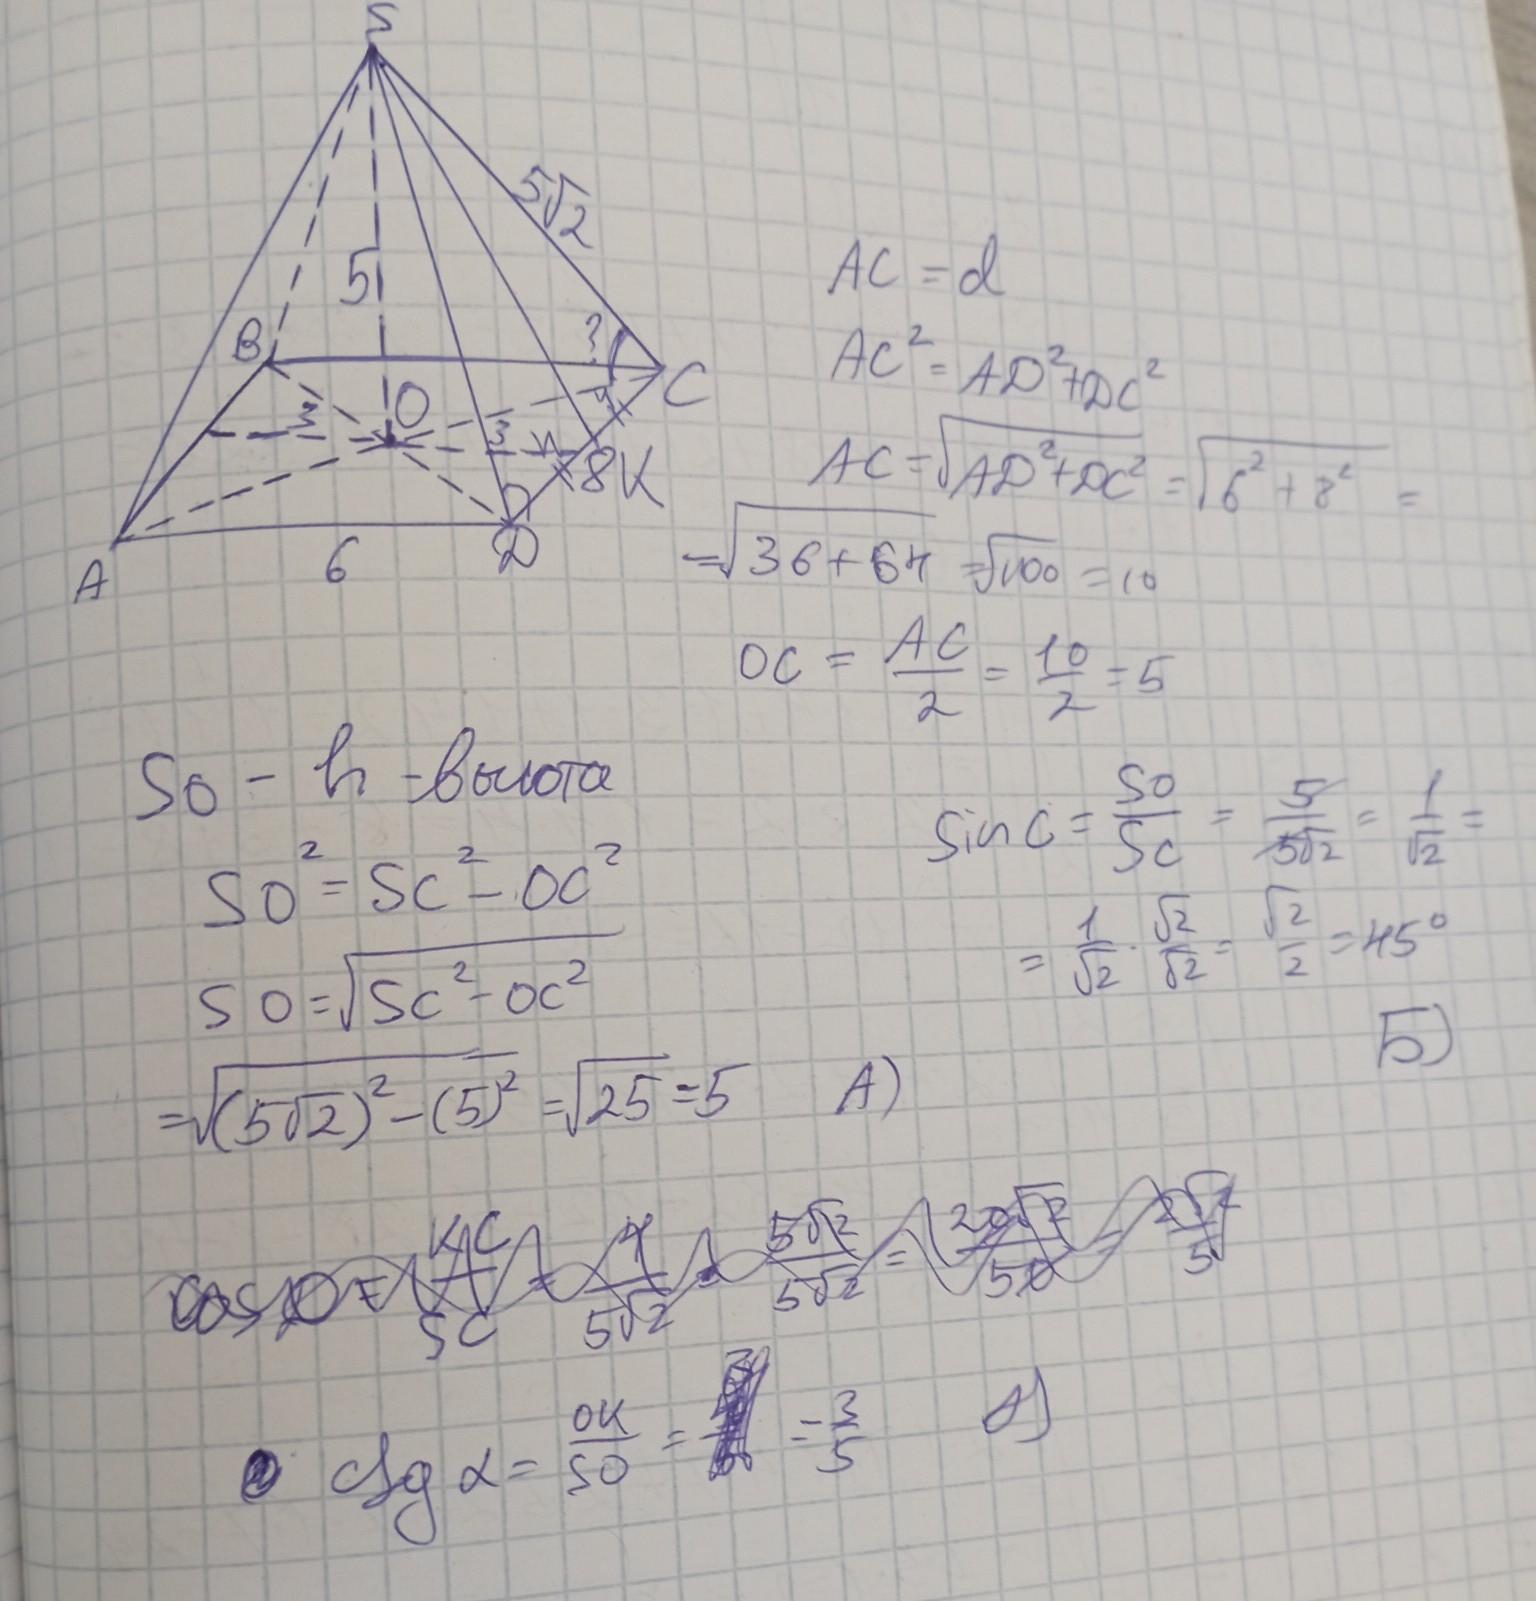 S
5√2
5
?
B
C
O
3
3
4
8
K
A
6
D
AC = d
AC² = AD² + DC²
AC = √AD² + DC² = √6² + 8² =
= √36 + 64 = √100 = 10
OC = AC/2 = 10/2 = 5
SO - h - высота
SO² = SC² - OC²
SO = √SC² - OC²
= √(5√2)² - (5)² = √25 = 5 A)
sin C = SO/SC = 5/5√2 = 1/√2 =
= 1/√2 · √2/√2 = √2/2 = 45°
Б)
ctg α = OK/SO = = 3/5